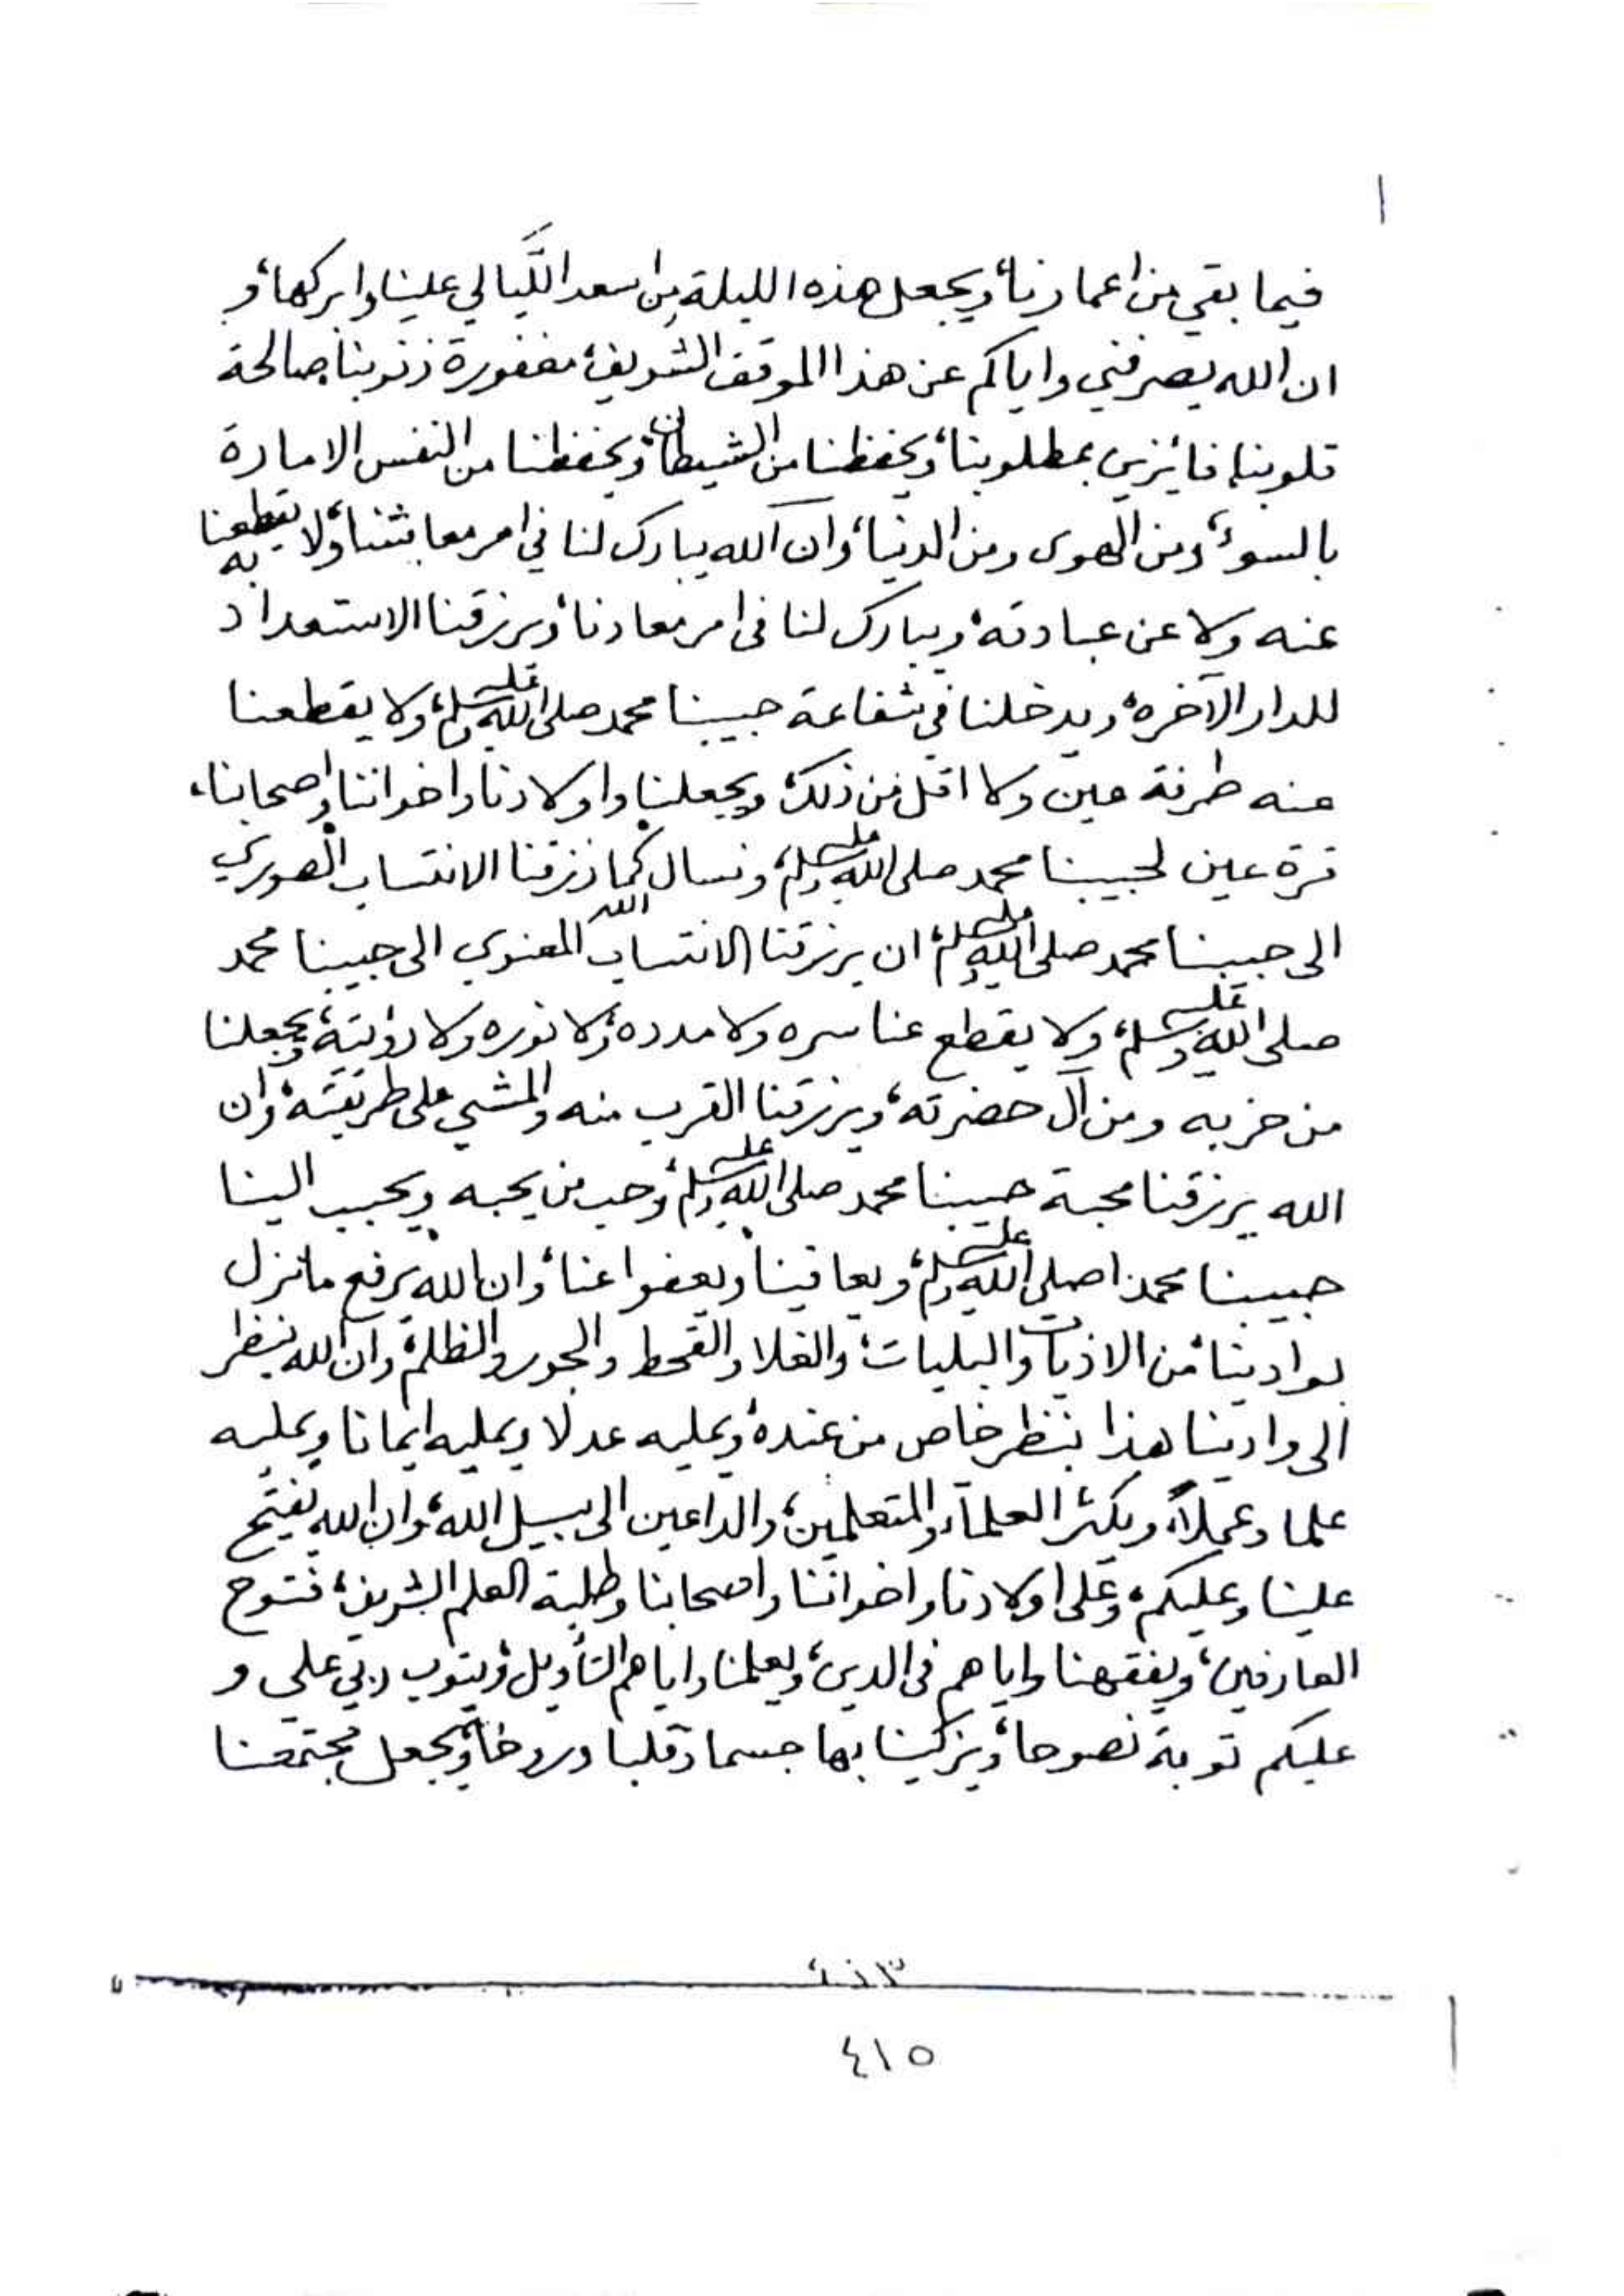 فيما بقي من اعمارنا، ويجعل هذه الليلة من اسعد اللَّيالي علينا وابركها، و
ان الله يصرفني واياكم عن هذا الموقف الشريف، مغفورة ذنوبنا، صالحة
قلوبنا، فائزين بمطلوبنا، ويحفظنا من الشيطان، ويحفظنا من النفس الامارة
بالسوء، ومن الهوى ومن الدنيا، وان الله يبارك لنا في امر معاشنا، ولا يقطعنا به
عنه ولا عن عبادته، ويبارك لنا في امر معادنا، ويرزقنا الاستعداد
للدار الآخره، ويدخلنا في شفاعة حبيبنا محمد صلى الله عليه وسلم، ولا يقطعنا
عنه طرفة عين ولا اقل من ذلك، ويجعلنا واولادنا واخواننا واصحابنا،
قرة عين لحبيبنا محمد صلى الله عليه وسلم، ونسال الله كما رزقنا الانتساب الصوري
الى حبيبنا محمد صلى الله عليه وسلم، ان يرزقنا الانتساب المعنوي الى حبيبنا محمد
صلى الله عليه وسلم، ولا يقطع عنا سره ولا مدده، ولا نوره ولا رؤيته، ويجعلنا
من حزبه ومن آل حضرته، ويرزقنا القرب منه والمشي على طريقته، وان
الله يرزقنا محبة حبيبنا محمد صلى الله عليه وسلم، وحب من يحبه ويحبب الينا
حبيبنا محمدا صلى الله عليه وسلم، ويعافينا ويعفوا عنا، وان الله يرفع مانزل
بوادينا، من الاذيات والبليات، والغلا والقحط والجور والظلم، وان الله ينظر
الى وادينا هذا بنظر خاص من عنده، ويمليه عدلا ويمليه ايمانا ويمليه
علما وعملاً، ويكثر العلمآء والمتعلمين، والداعين الى سبيل الله، وان الله يفتح
علينا وعليكم، وعلى اولادنا واخواننا واصحابنا وطلبة العلم الشريف، فتوح
العارفين، ويفقهنا واياهم في الدين، ويعلمنا واياهم التأويل، ويتوب ربي علي و
عليكم توبة نصوحا، ويزكينا بها جسما وقلبا وروحا، ويجعل مجتمعنا
٤١٥